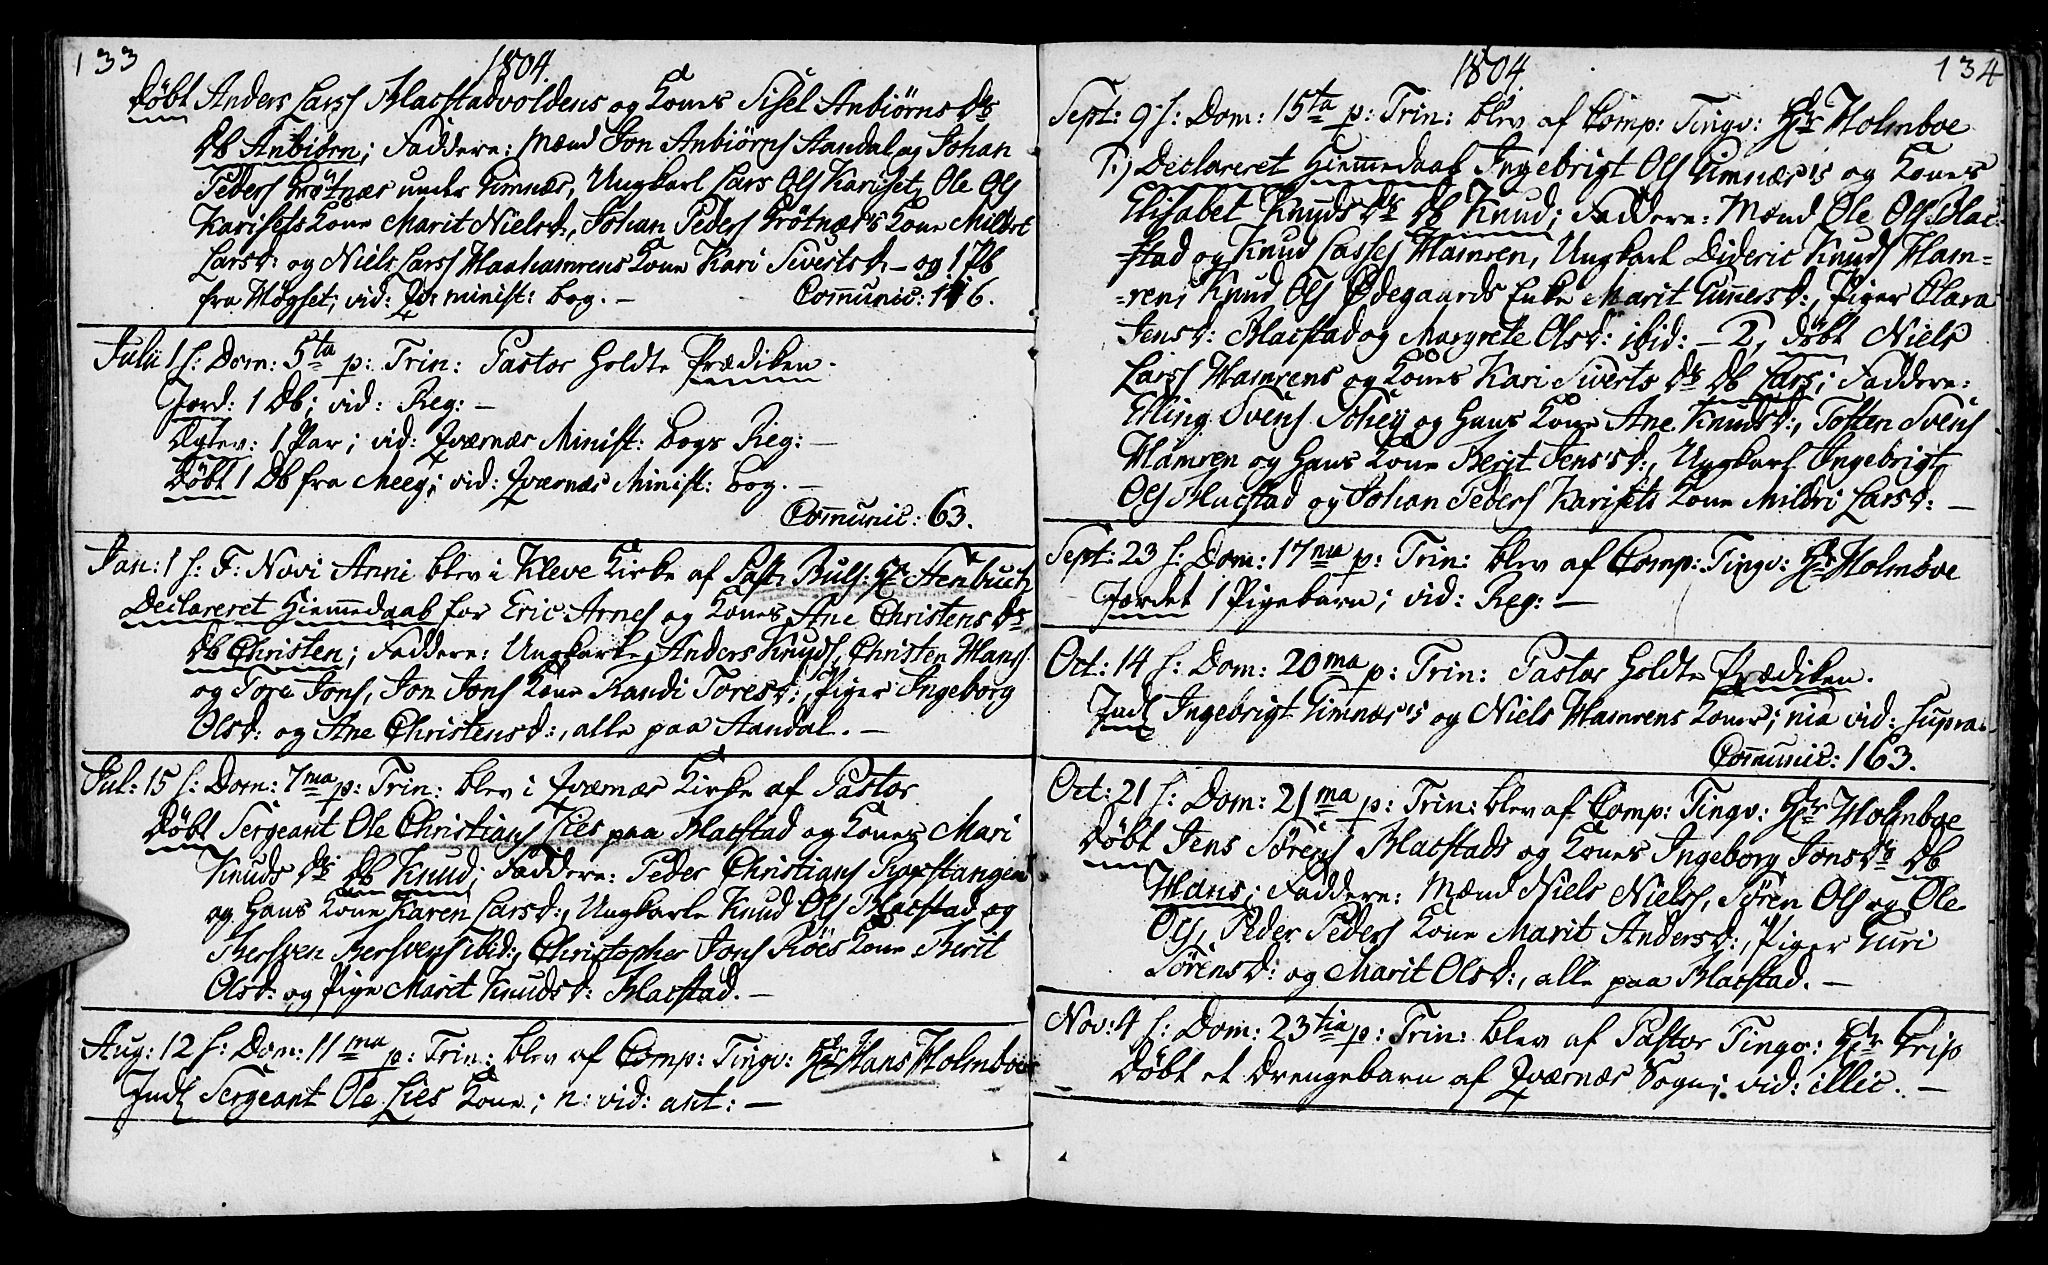 133
1804.
Döbt Anders Larss Blacstadvoldens og Kones Sisel Anbiörns Dr
Db Anbiörn; Faddere: Mænd Jon Anbiörns Aandal og Johan
Peders Grötnæs under Gimnæs, Ungkarl Lars Ols Kariset, Ole Ols
Karisets Kone Marit Nielsd:, Johan Peders Grötnæs's Kone Mildri
Larsd: og Niels Larss Maahamrens Kone Kari Sivertsd. – og 1 Pb
fra Högset; vid: Qv: minist: bog. – Communic: 116.
Julii 1 h: Dom: 5ta p: Trin: Pastor holdte Prædiken.
Jord: 1 Db; vid: Reg: –
Ægtev: 1 Par; vid: Qværnæs Minist: bogs Reg: –
Döbt 1 Db fra Meeg; vid: Qværnæs Minist: bog. –
Communic: 63.
Jan: 1 h: F: Novi Anni blev i Kleve Kirke af Past: Buls: Hr Stenbuch
Declareret Hiemmedaab for Eric Arnes og Kones Ane Christens Dr
Db Christen; Faddere: Ungkarle Anders Knuds, Christen Hans
og Tore Jons, Jon Jons Kone Randi Toresd:, Piger Ingeborg
Olsd: og Ane Christensd:, alle paa Aandal. –
Jul: 15 h: Dom: 7ma p: Trin: blev i Qværnæs Kirke af Pastor
Döbt Sergeant Ole Christians Lies paa Blacstad og Kones Mari
Knuds Dr Db Knud; Faddere: Peder Christians Ropstangen
og hans Kone Karen Larsd:, Ungkarle Knud Ols Blacstad og
Bersven Bersvens ibid:, Christopher Jons Röes Kone Berit
Olsd: og Pige Marit Knudsd: Blacstad. –
Aug: 12 h: Dom: 11ma p: Trin: blev af Comp: Tingv: Hr Hans Holmboe
Indl Sergeant Ole Lies Kone; n: vid: ant: –
1804.
134
Sept: 9 h: Dom: 15ta p: Trin: blev af Comp: Tingv: Hr Holmboe
1.) Declareret Hiemmedaab Ingebrigt Ols Gimnæs's og Kones
Elisabet Knuds Dr Db Knud; Faddere: Mænd Ole Ols Blac-
stad og Knud Lasses Hamren, Ungkarl Dideric Knuds Ham-
-ren, Knud Ols Ödegaards Enke Marit Gunnersd:, Piger Clara
Jensd: Blacstad og Margrete Olsd: ibid: – 2, döbt Niels
Larss Hamrens og Kones Kari Siverts Dr Db Lars; Faddere:
Elling Svens Tohey og hans Kone Ane Knudsd:, Tosten Svens
Hamren og hans Kone Berit Jens'sd:, Ungkarl Ingebrigt
Ols Blacstad og Johan Peders Karisets Kone Mildri Larsd: –
Sept: 23 h: Dom: 17ma p: Trin: blev af Comp: Tingv: Hr Holmboe
Jordet 1 Pigebarn; vid: Reg: –
Oct: 14 h: Dom: 20ma p: Trin: Pastor holdte Prædiken.
Indl Ingebrigt Gimnæs's og Niels Hamrens Koner; nia vid: supra.
Communic: 163.
Oct: 21 h: Dom: 21ma p: Trin: blev af Comp: Tingv: Hr Holmboe
Döbt Jens Sörens Blacstads og Kones Ingeborg Jons Dr Db
Hans; Faddere: Mænd Niels Niels, Sören Ols og Ole
Ols, Peder Peders Kone Marit Andersd:, Piger Guri
Sörensd: og Marit Olsd:, alle paa Blacstad. –
Nov: 4 h: Dom: 23tia p: Trin: blev af Pastor Tingv: Hr Crip
Döbt et Drengebarn af Qværnæs Sogn; vid: illic. –